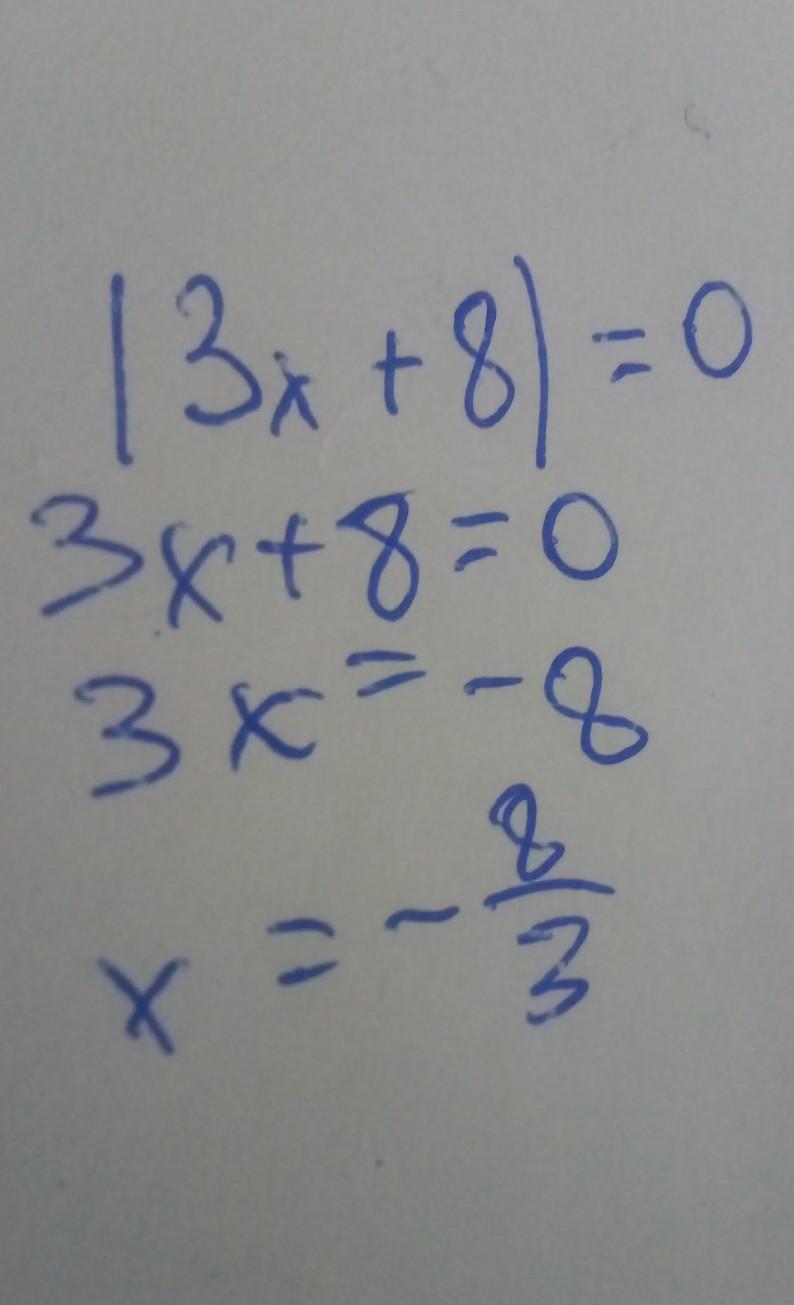 |3x + 8| = 0
3x + 8 = 0
3x = -8
x = -8/3